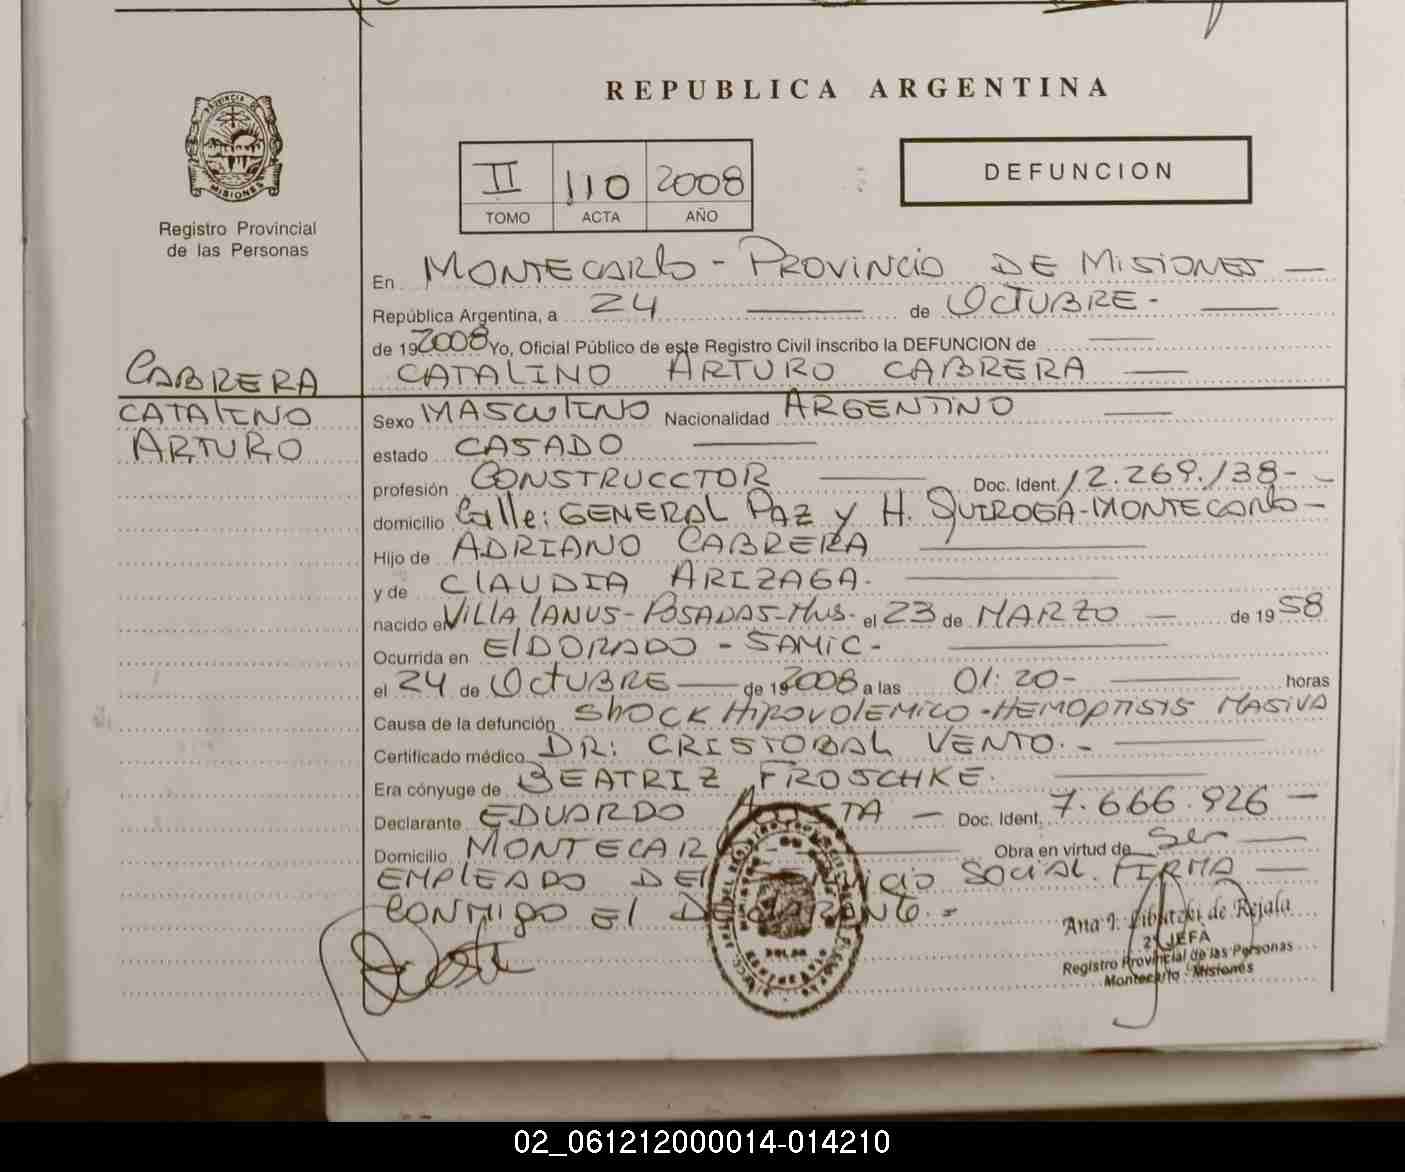 REPUBLICA ARGENTINA
PROVINCIA DE
MISIONES
Registro Provincial
de las Personas
II 110 2008
TOMO ACTA AÑO
DEFUNCION
En MONTECARLO - PROVINCIA DE MISIONES —
República Argentina, a 24 — de OCTUBRE. —
de 192008 Yo, Oficial Público de este Registro Civil inscribo la DEFUNCION de —
CATALINO ARTURO CABRERA —
CABRERA
CATALINO
ARTURO
Sexo MASCULINO Nacionalidad ARGENTINO —
estado CASADO —
profesión CONSTRUCCTOR — Doc. Ident. 12.269.138-
domicilio Calle: GENERAL PAZ y H. QUIROGA-MONTECARLO-
Hijo de ADRIANO CABRERA —
y de CLAUDIA ARIZAGA. —
nacido en VILLA LANUS-POSADAS-Mns. el 23 de MARZO — de 1958
Ocurrida en ElDORADO - SAMIC- —
el 24 de OCTUBRE — de 192008 a las 01:20- — horas
Causa de la defunción SHOCK HIPOVOLEMICO-HEMOPTISIS MASIVA
Certificado médico DR: CRISTOBAL VENTO.- —
Era cónyuge de BEATRIZ FROSCHKE. —
Declarante EDUARDO ACOSTA — Doc. Ident. 7.666.926 —
Domicilio MONTECARLO — Obra en virtud de Ser —
EMPLEADO DEL SERVICIO SOCIAL. FIRMA —
CONMIGO El DECLARANTE.-
Acosta
Ana I. de Rejala
2º JEFA
Registro Provincial de las Personas
Montecarlo - Misiones
02_061212000014-014210